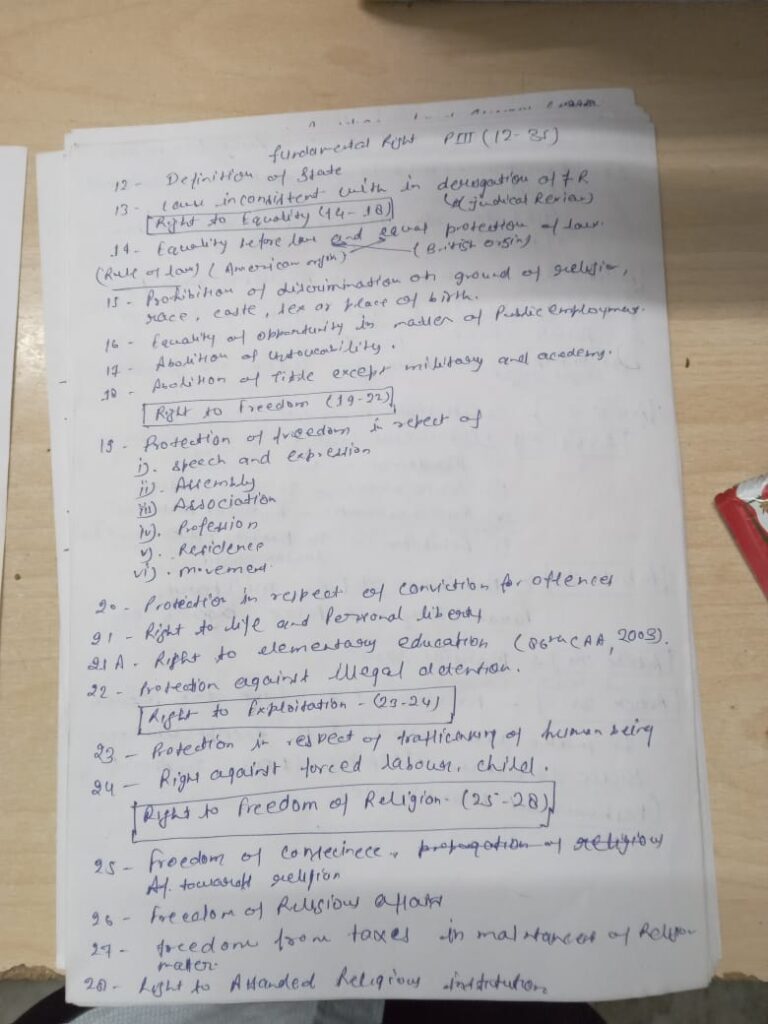 Fundamental Right PIII (12-35)
12- Definition of State
13- Laws inconsistent with in derogation of FR
(Judical Review)
Right to Equality (14-18)
14- Equality before law and equal protection of law.
(Rule of law) (American origin) (British origin)
15- Prohibition of discrimination on ground of religion,
race, caste, sex or place of birth.
16- Equality of opportunity in matter of Public employment.
17- Abolition of Untoucability.
18- Abolition of title except military and academy.
Right to Freedom (19-22)
19- Protection of freedom in repect of
i). speech and expression
ii). Assembly
iii) Association
iv). Profession
v). Residence
vi). movement
20- Protection in respect of conviction for offences
21- Right to life and Personal liberty
21A. Right to elementary education (86th CAA, 2003).
22- Protection against illegal detention.
Right to Exploitation - (23-24)
23- Protection in respect of trafficking of human being
24- Right against forced labour, child.
Right to Freedom of Religion- (25-28)
25- Freedom of conscinece, propagation of religious
towards religion
26- Freedom of Religious affairs
27- freedom from taxes in maintances of Religion
matter.
28- Right to Attended Religious institution